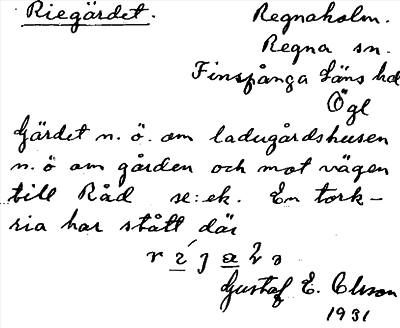 Riegärdet.
Regnaholm.
Regna sn.
Finspånga Läns hd
Ögl
Gärdet n. ö. om ladugårdshusen
n. ö om gården och mot vägen
till Råd se: ek. En tork-
ria har stått där
Gustaf E. Olsson
1931